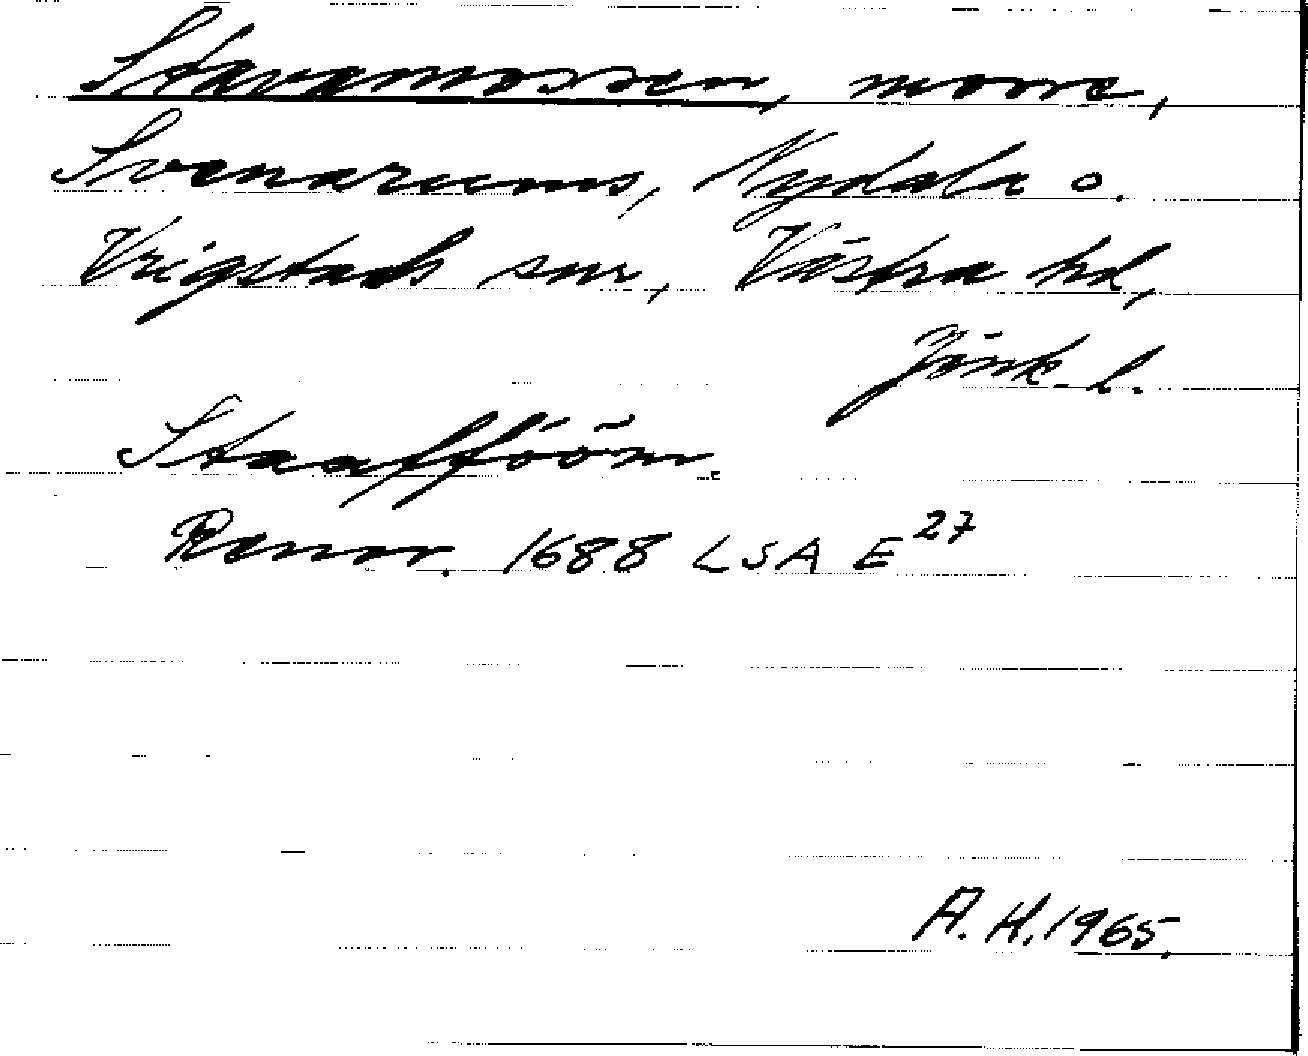 Stavamossen, mosse,
Svenarums, Nydala o.
Vrigstads snr, Västra hd,
Jönk. l.
Staafföön
Renov. 1688 LSA E 27
A. H. 1965.